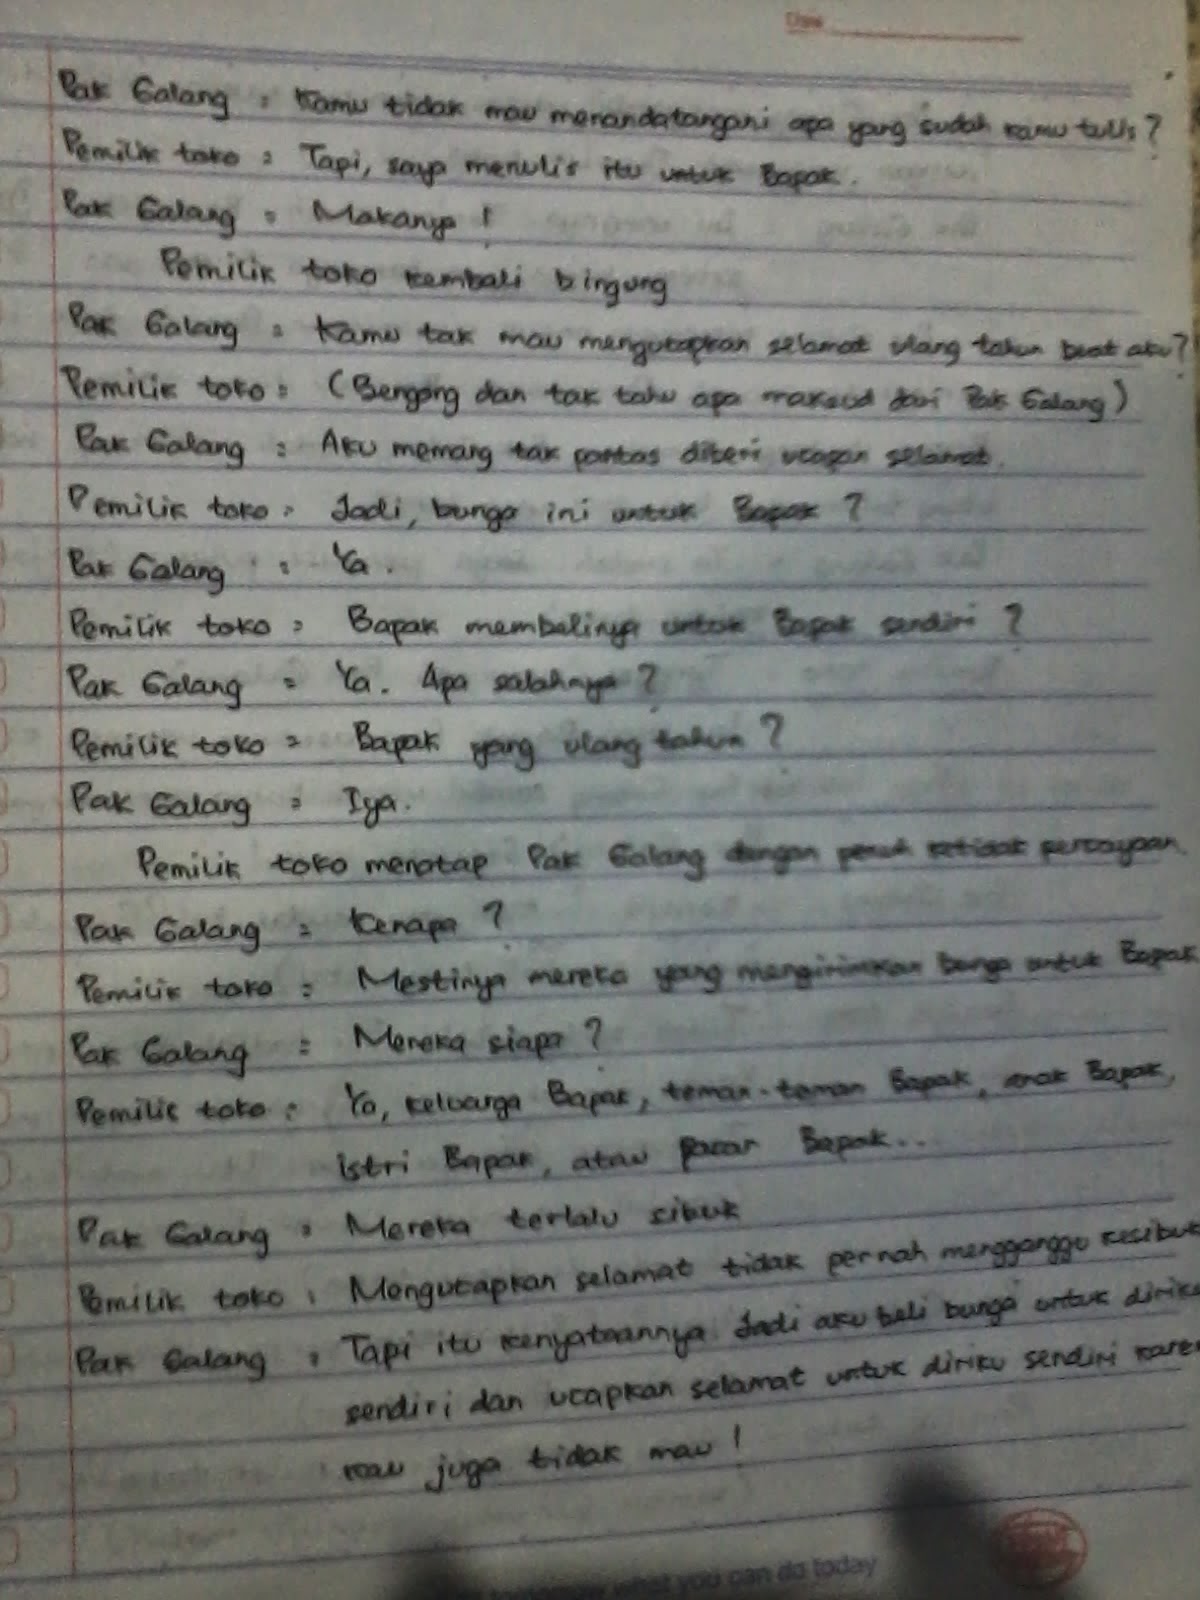 Date
Pak Galang : Kamu tidak mau menandatangani apa yang sudah kamu tulis ?
Pemilik toko : Tapi, saya menulis itu untuk Bapak.
Pak Galang : Makanya !
Pemilik toko kembali bingung
Pak Galang : Kamu tak mau mengucapkan selamat ulang tahun buat aku ?
Pemilik toko : (Bengong dan tak tahu apa maksud dari Pak Galang)
Pak Galang : Aku memang tak pantas diberi ucapan selamat.
Pemilik toko : Jadi, bunga ini untuk Bapak ?
Pak Galang : Ya.
Pemilik toko : Bapak membelinya untuk Bapak sendiri ?
Pak Galang : Ya. Apa salahnya ?
Pemilik toko : Bapak yang ulang tahun ?
Pak Galang : Iya.
Pemilik toko menatap Pak Galang dengan penuh ketidak percayaan.
Pak Galang : Kenapa ?
Pemilik toko : Mestinya mereka yang mengirimkan bunga untuk Bapak
Pak Galang : Mereka siapa ?
Pemilik toko : Ya, keluarga Bapak, teman-teman Bapak, anak Bapak,
istri Bapak, atau pacar Bapak...
Pak Galang : Mereka terlalu sibuk
Pemilik toko : Mengucapkan selamat tidak pernah mengganggu kesibuk
Pak Galang : Tapi itu kenyataannya. Jadi aku beli bunga untuk diriku
sendiri dan ucapkan selamat untuk diriku sendiri karen
mau juga tidak mau !
what you can do today